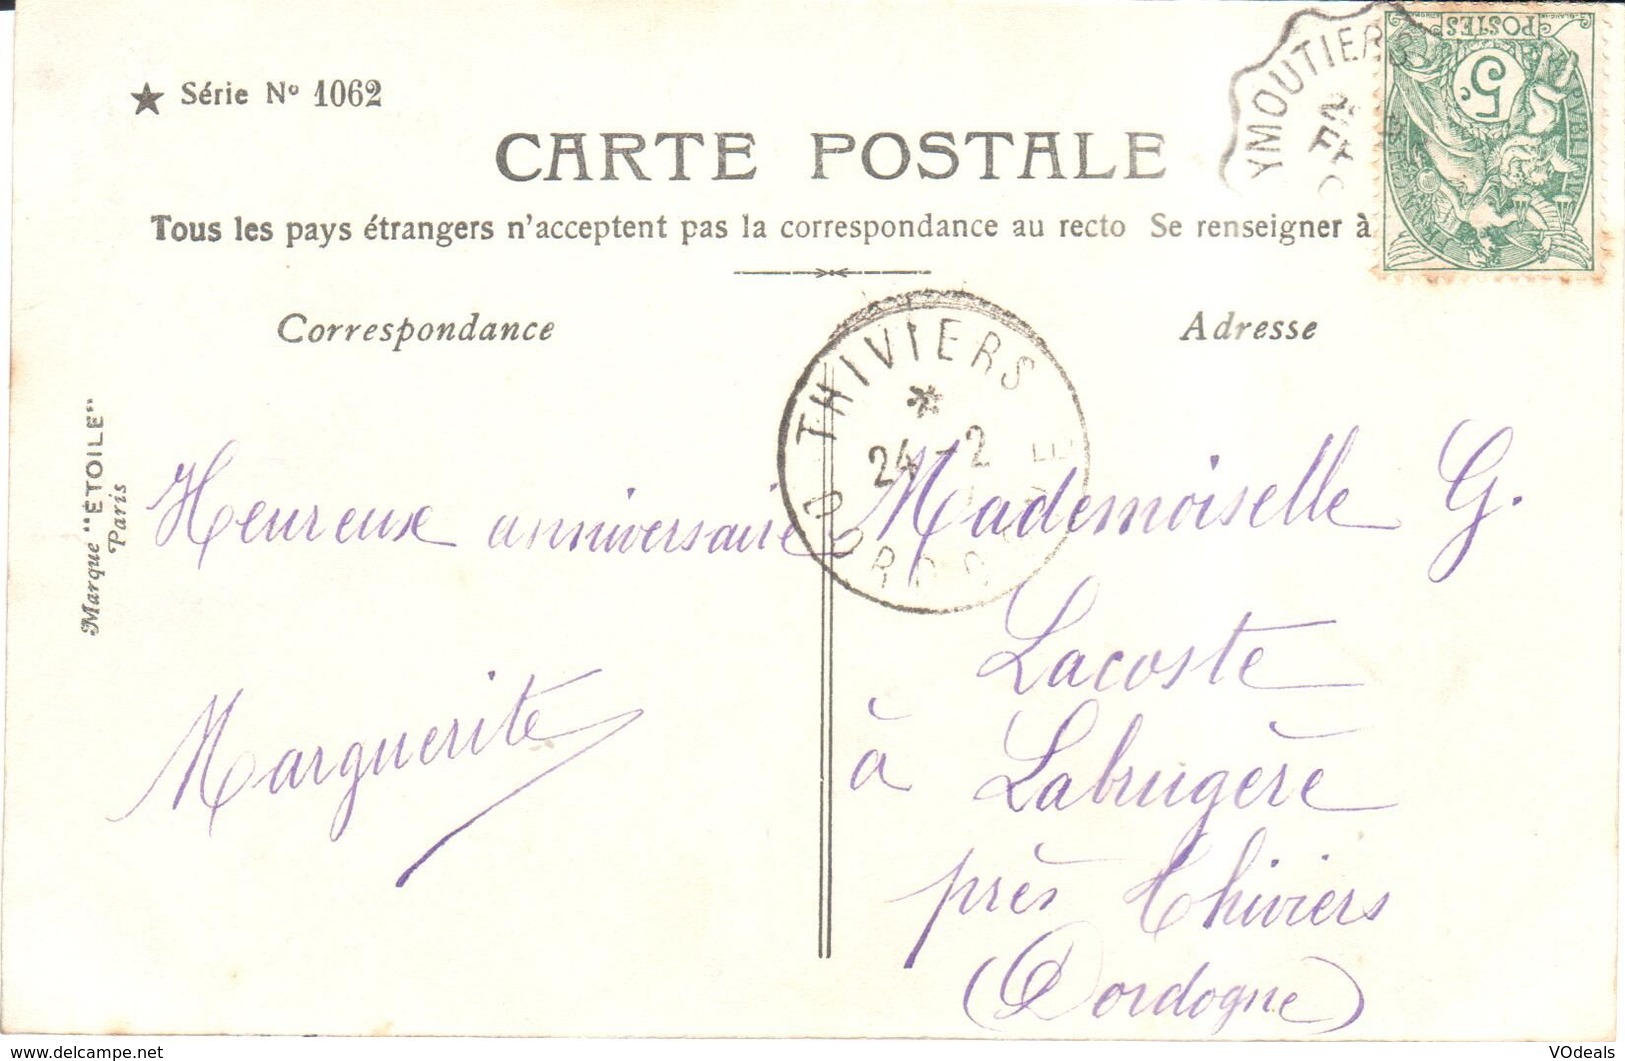 ★ Série Nº 1062
CARTE POSTALE
Tous les pays étrangers n'acceptent pas la correspondance au recto Se renseigner à
Correspondance
Adresse
Marque "ÉTOILE"
Paris
YMOUTIERS
POSTES
5c
THIVIERS
*
24 - 2
DORDOGNE
Heureuse anniversaire
Marguerite
Mademoiselle G.
Lacoste
à Labrugère
près Thiviers
(Dordogne)
www.delcampe.net
VOdeals